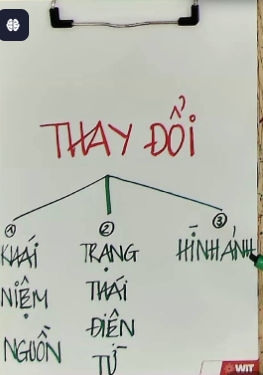 THAY ĐỔI
①
KHÁI
NIỆM
NGUỒN
②
TRẠNG
THÁI
ĐIỆN
TỬ
③
HÌNH ẢNH
WIT